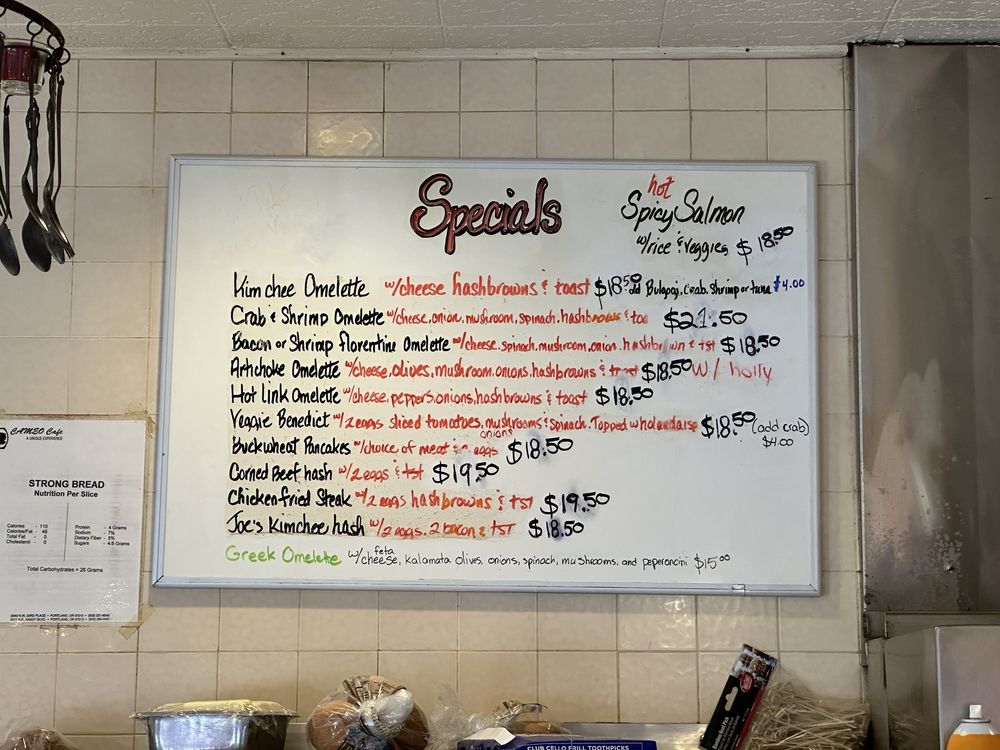 Specials
hot
Spicy Salmon
w/rice & veggies $18.50
Kimchee Omelette w/cheese hashbrowns & toast $18.50 add Bulgogi, Crab, Shrimp or tuna $4.00
Crab & Shrimp Omelette w/cheese, onion, mushroom, spinach, hashbrowns & toa $21.50
Bacon or Shrimp florentine Omelette w/cheese, spinach, mushroom, onion, hashbrown & tst $18.50
Artichoke Omelette w/cheese, olives, mushroom, onions, hashbrowns & toast $18.50 w/ holly
Hot link Omelette w/cheese, peppers, onions, hashbrowns & toast $18.50
Veggie Benedict w/2 eggs sliced tomatoes, mushrooms & Spinach. Topped w holandaise $18.50 (add crab)
onions
$4.00
Buckwheat Pancakes w/choice of meat eggs $18.50
Corned Beef hash w/2 eggs & tst $19.50
Chicken fried Steak w/2 eggs hashbrowns & tst $19.50
Joe's Kimchee hash w/2 eggs, 2 bacon & TST $18.50
feta
Greek Omelete w/cheese, kalamata olivs, onions, spinach, mushrooms, and peperoncini $15.00
CAMEO Cafe
A UNIQUE EXPERIENCE
STRONG BREAD
Nutrition Per Slice
Calories - 110
Calories/Fat - 49
Total Fat - 0
Cholesterol - 0
Protein - 4 Grams
Sodium - 7%
Dietary Fiber - 5%
Sugars - 4.6 Grams
Total Carbohydrates = 26 Grams
CLUB CELLO FRILL TOOTHPICKS